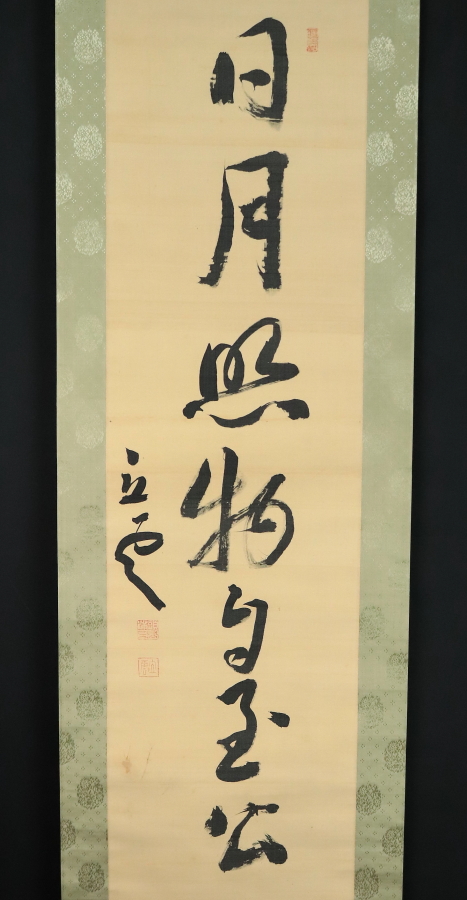 日月照物自至公
立雲